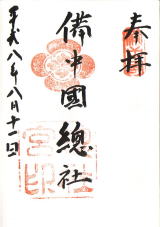 奉拝
備中國總社
平成八年八月十一日
總社
宮印